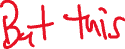 But this